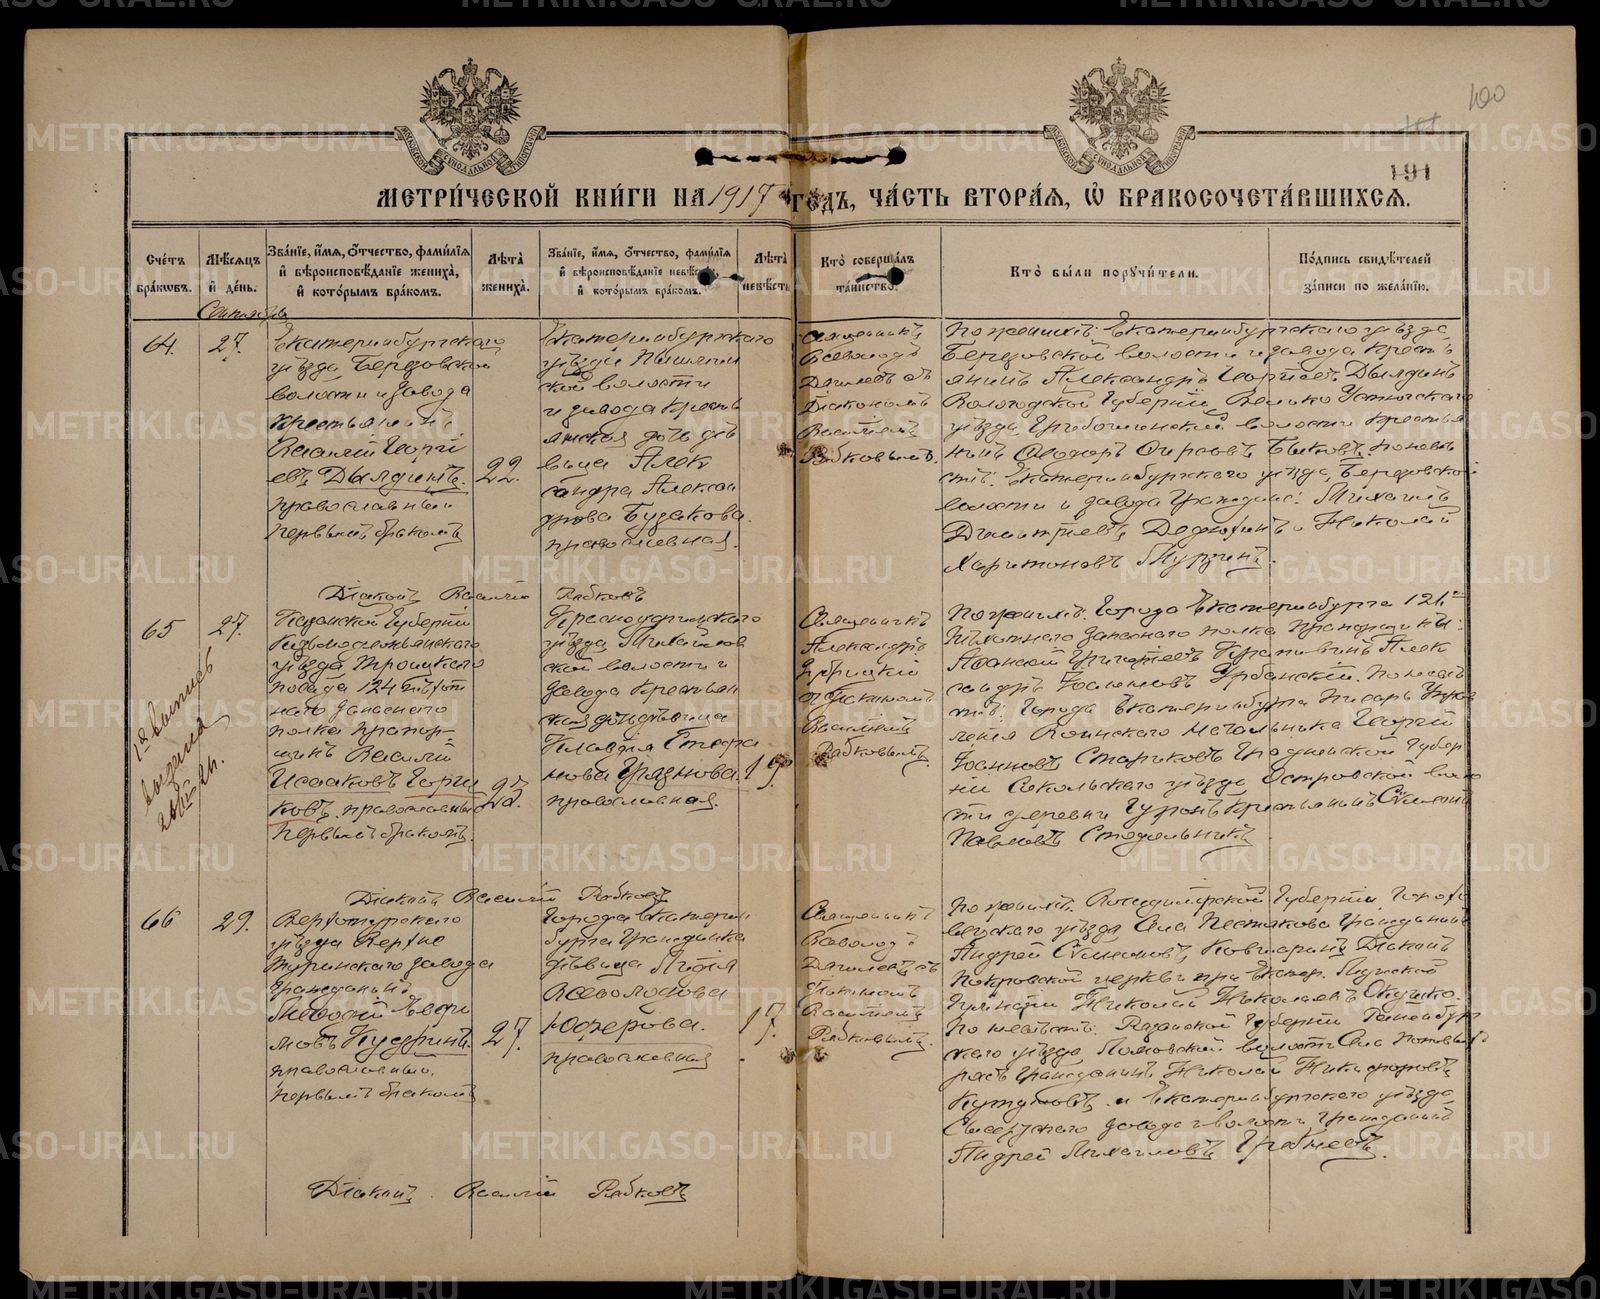 400
191
МЕТРИ́ЧЕСКОЙ КНИ́ГИ НА 1917 ГОДЪ, ЧА́СТЬ ВТОРА́Я, Ѡ҆ БРАКОСОЧЕТА́ВШИХСЯ.
Сче́тъ бра́кѡвъ.
Мѣ́сяцъ и҆ де́нь.
Зва́нїе, и҆́мя, ѻ҆́тчество, фами́лїя и҆ вѣроисповѣ́данїе жениха̀, и҆ кото́рымъ бра́комъ.
Лѣ́та жениха̀.
Зва́нїе, и҆́мя, ѻ҆́тчество, фами́лїя и҆ вѣроисповѣ́данїе невѣ́сты, и҆ кото́рымъ бра́комъ.
Лѣ́та невѣ́сты
Кто̀ соверша́лъ та́инство.
Кто̀ бы́ли порꙋчи́тели.
По́дпись свидѣ́телей за́писи по жела́нїю.
Сентябрь
64.
27.
Екатеринбургскаго
уѣзда Березовской
волости и завода
крестьянинъ
Василій Георгі
евъ Дылдинъ.
православный
первымъ бракомъ
22.
Екатеринбургскаго
уѣзда Пышмин
ской волости
и завода крестъ
янская дочь дѣ
вица Алек
сандра Алексан
дрова Бузакова.
православная.
Священникъ
Всеволодъ
съ
Діакономъ
Василіемъ
Рябковымъ.
По женихѣ: Екатеринбургскаго уѣзда,
Березовской волости и завода кресть
янинъ Александръ Георгіевъ Дылдинъ
Вологодской губерніи, Велико-Устюгскаго
уѣзда, волости крестья
нинъ Ѳеодоръ Быковъ. По невѣ
стѣ: Екатеринбургскаго уѣзда, Березовской
волости и завода граждане: Михаилъ
Димитріевъ и Николай
Харитоновъ Мурзинъ.
Діаконъ Василій Рябковъ
65
27.
Казанской губерніи
Козьмодемьянскаго
уѣзда Троицкаго
посада 124 пѣхот
наго запаснаго
полка прапор-
щикъ Василій
Исааковъ Горш
ковъ. православный
первымъ бракомъ.
23.
Красноуфимскаго
уѣзда Михайлов
ской волости и
завода крестьян
ская дочь дѣвица
Клавдія Стефа
нова Грязнова.
православная.
19.
Священникъ
Александръ
съ Діакономъ
Василіемъ
Рябковымъ.
По женихѣ: Города Екатеринбурга 124го
пѣхотнаго запаснаго полка прапорщики:
Аѳанасій Григоріевъ Крапивинъ Алек
сандръ Іоанновъ Урбанскій. По невѣ
стѣ: Города Екатеринбурга писарь Управ
ленія Воинскаго Начальника Георгій
Іоанновъ Стариковъ Гродненской губер
ніи Сокольскаго уѣзда, Островской воло
сти деревни крестьянинъ
Павловъ Стодольникъ
1я выпись
выдана
Діаконъ Василій Рябковъ
66
29.
Верхотурскаго
уѣзда Верхне
Туринскаго завода
гражданинъ
Алексій Ефи
мовъ Кудринъ.
православный.
первымъ бракомъ
27.
Города Екатерин
бурга гражданка
дѣвица Лидія
Всеволодова
Юферова.
православная
17.
Священникъ
Всеволодъ
съ
Діакономъ
Василіемъ
Рябковымъ.
По женихѣ: Владимірской губерніи Горохо
вецкаго уѣзда Села Пестякова гражданинъ
Андрей Симеоновъ Діаконъ
Покровской церкви при Екатер. Мужской
гимназіи Николай Николаевъ
По невѣстѣ: Рязанской губерніи Раненбург
скаго уѣзда, волости Села
гражданинъ Николай Никифоровъ
и Екатеринбургскаго уѣзда,
Сысертскаго завода и волости, гражданинъ
Андрей Михаиловъ
Діаконъ Василій Рябковъ
METRIKI.GASO-URAL.RU